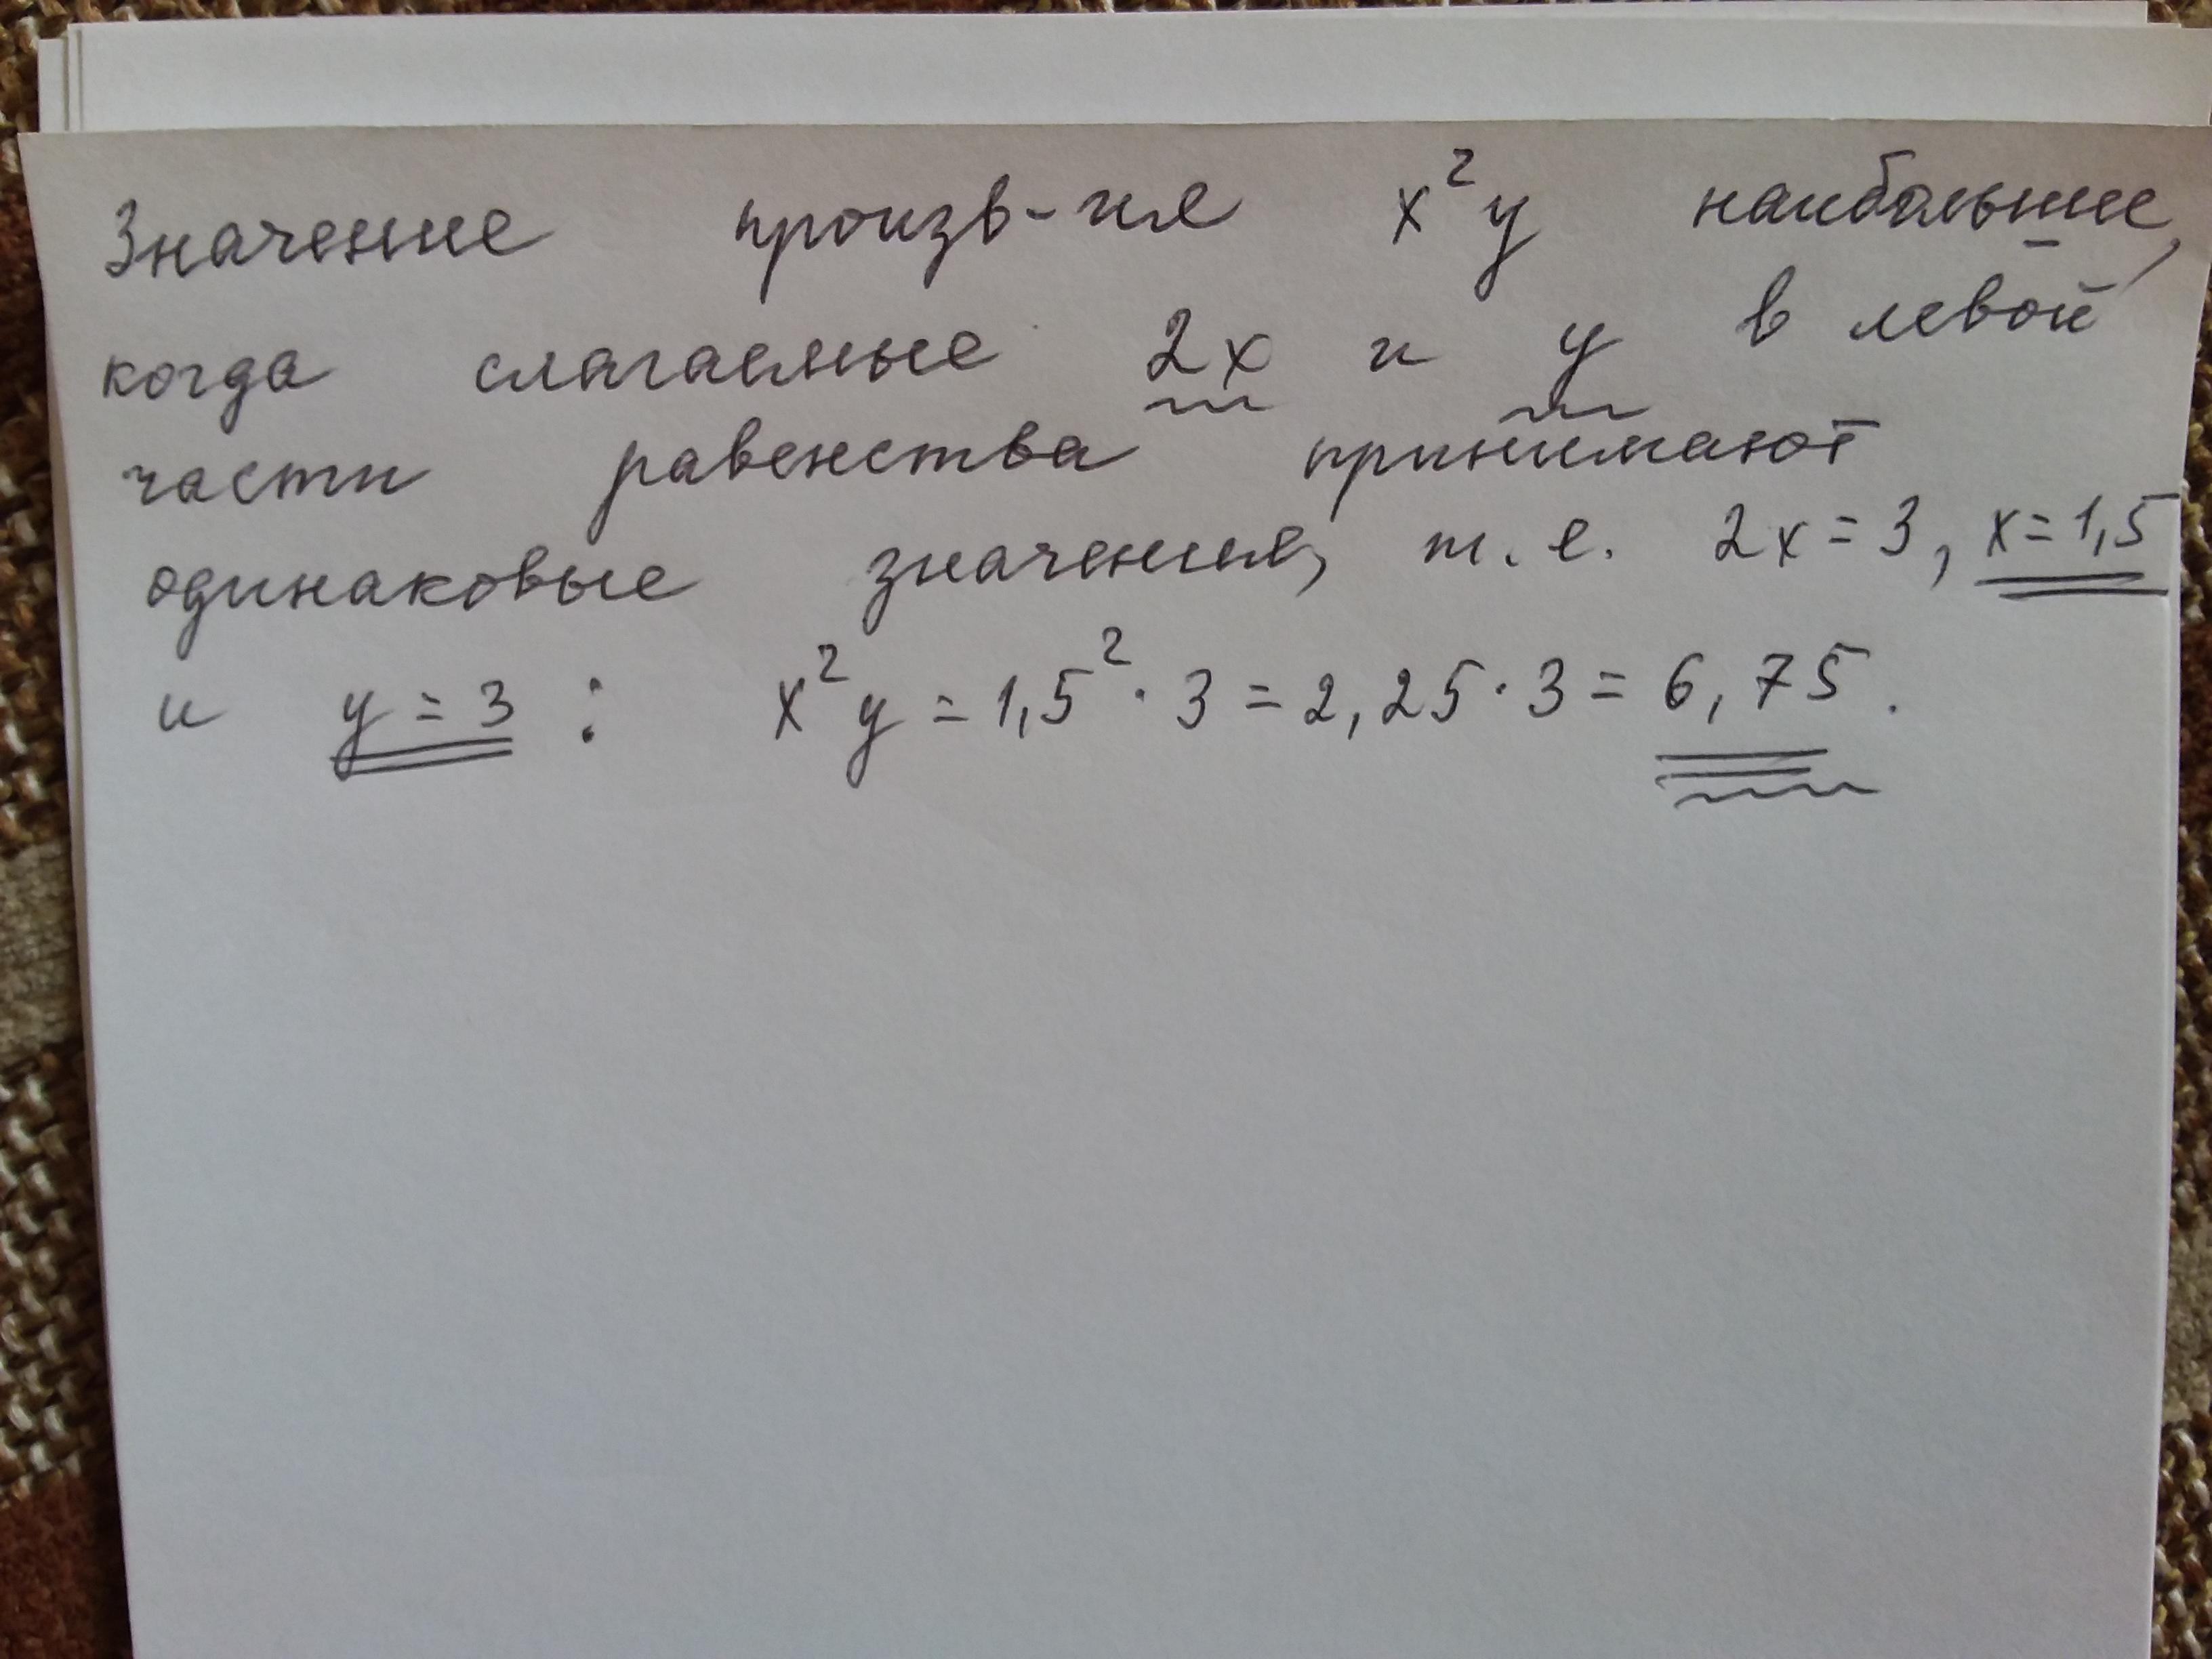 Значение произв-ия x²y наибольшее,
когда слагаемые 2x и y в левой
части равенства принимают
одинаковые значения, т. е. 2x = 3, x = 1,5
и y = 3 : x²y = 1,5² · 3 = 2,25 · 3 = 6,75.